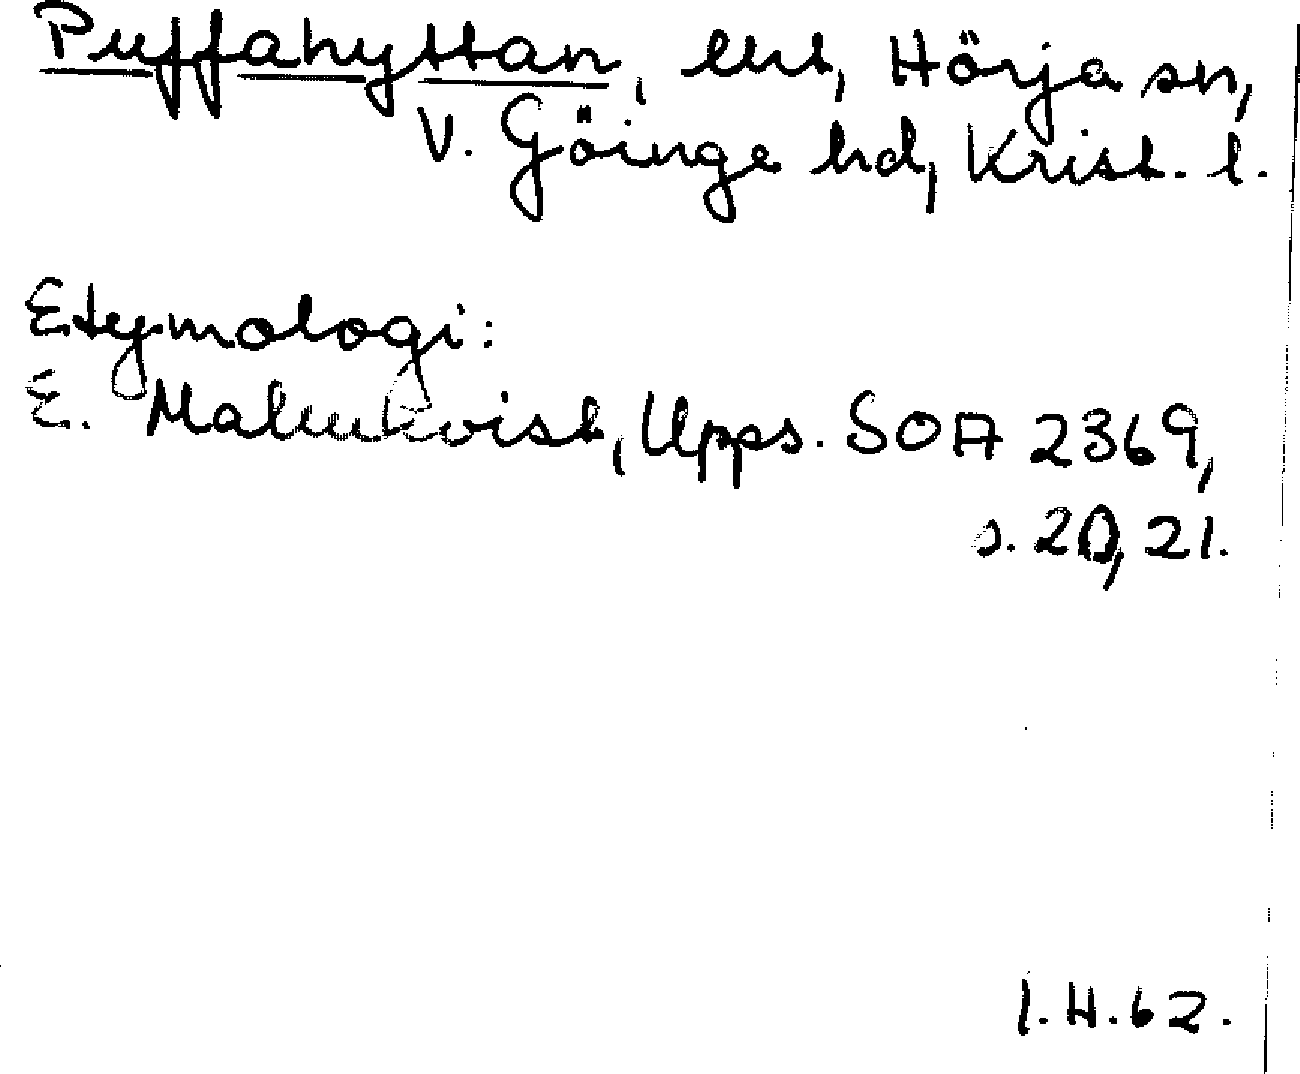 Puffahyttan, lht, Hörja sn,
V. Göinge hd, Krist. l.
Etymologi:
E. Malmkvist, Upps. SOA 2369,
s. 20, 21.
I.H.62.